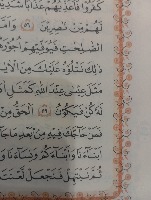 كَفَرُوا۟ فَأُعَذِّبُهُمْ عَذَابًا
لَهُم مِّن نَّـٰصِرِينَ ٥٦
ٱلصَّـٰلِحَـٰتِ فَيُوَفِّيهِمْ أُجُورَ
ذَٰلِكَ نَتْلُوهُ عَلَيْكَ مِنَ
مَثَلَ عِيسَىٰ عِندَ ٱللَّهِ كَمَثَلِ
لَهُۥ كُن فَيَكُونُ ٥٩ ٱلْحَقُّ مِن
فَمَنْ حَآجَّكَ فِيهِ مِنۢ بَعْدِ مَا جَآءَ
أَبْنَآءَنَا وَأَبْنَآءَكُمْ وَنِسَآءَنَا
ثُمَّ نَبْتَهِلْ فَنَجْعَل لَّعْنَتَ